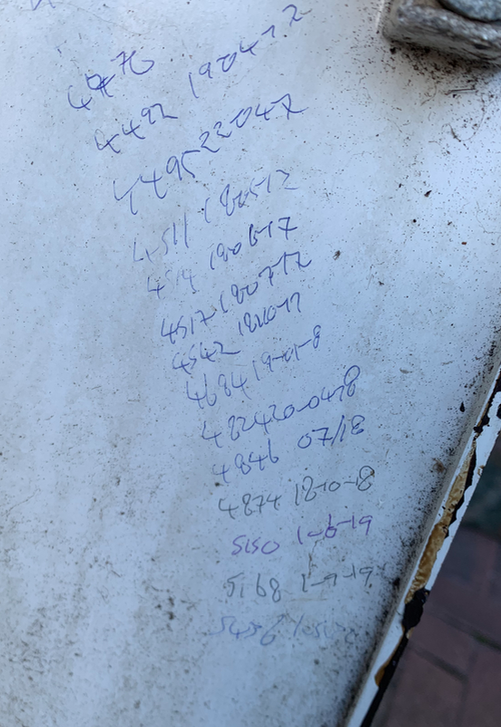 4476
4492 190417.2
4495 220417
4511 180517
4514 180617
4517 180717
4542 1810-17
4684 19-01-8
4824 20-04-18
4846 07/18
4874 18-10-18
5150 1-6-19
5168 1-7-19